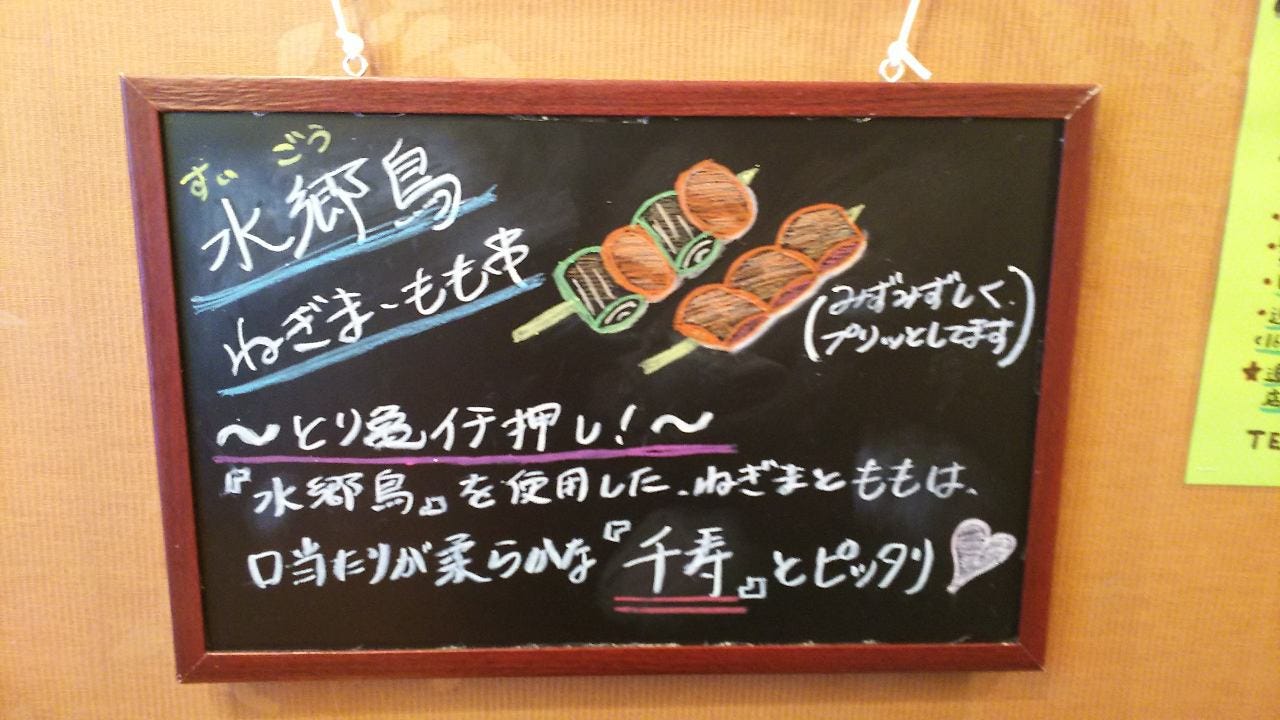 すいごう
水郷鳥
ねぎま、もも串
(みずみずしく、
プリッとしてます)
～とり亀イチ押し!～
『水郷鳥』を使用した、ねぎまとももは、
口当たりが柔らかな『千寿』とピッタリ
TE